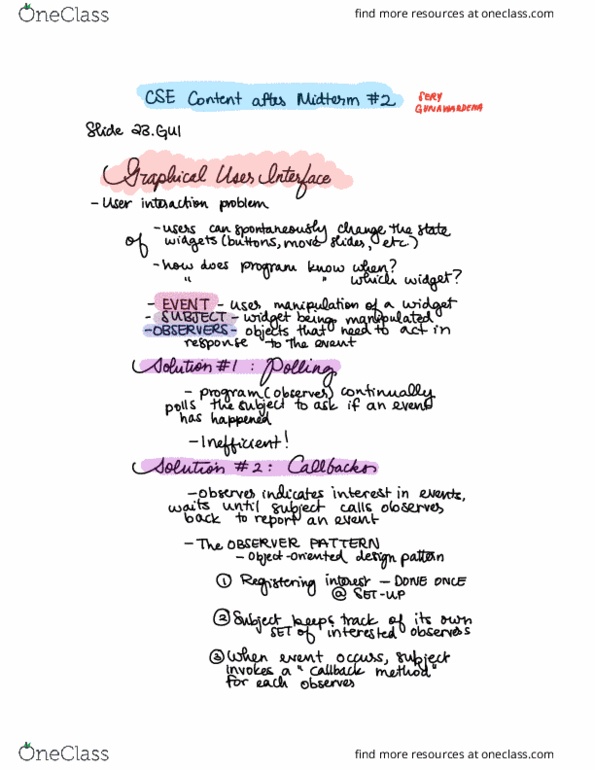 OneClass
find more resources at oneclass.com
CSE Content after Midterm #2
SERY
GUNAWARDENA
Slide 23.GUI
Graphical User Interface
- User interaction problem
- users can spontaneously change the state
of widgets (buttons, move slides, etc)
- how does program know when?
" " which widget?
- EVENT - user manipulation of a widget
- SUBJECT - widget being manipulated
- OBSERVERS - objects that need to act in
response to the event
Solution #1 : Polling
- program (observer) continually
polls the subject to ask if an event
has happened
- Inefficient!
Solution #2 : Callbacks
- observer indicates interest in events,
waits until subject calls observer
back to report an event
- The OBSERVER PATTERN
- Object-oriented design pattern
① Registering interest - DONE ONCE
@ SET-UP
② Subject keeps track of its own
SET of interested observers
③ When event occurs, subject
invokes a "callback method"
for each observer
OneClass
find more resources at oneclass.com